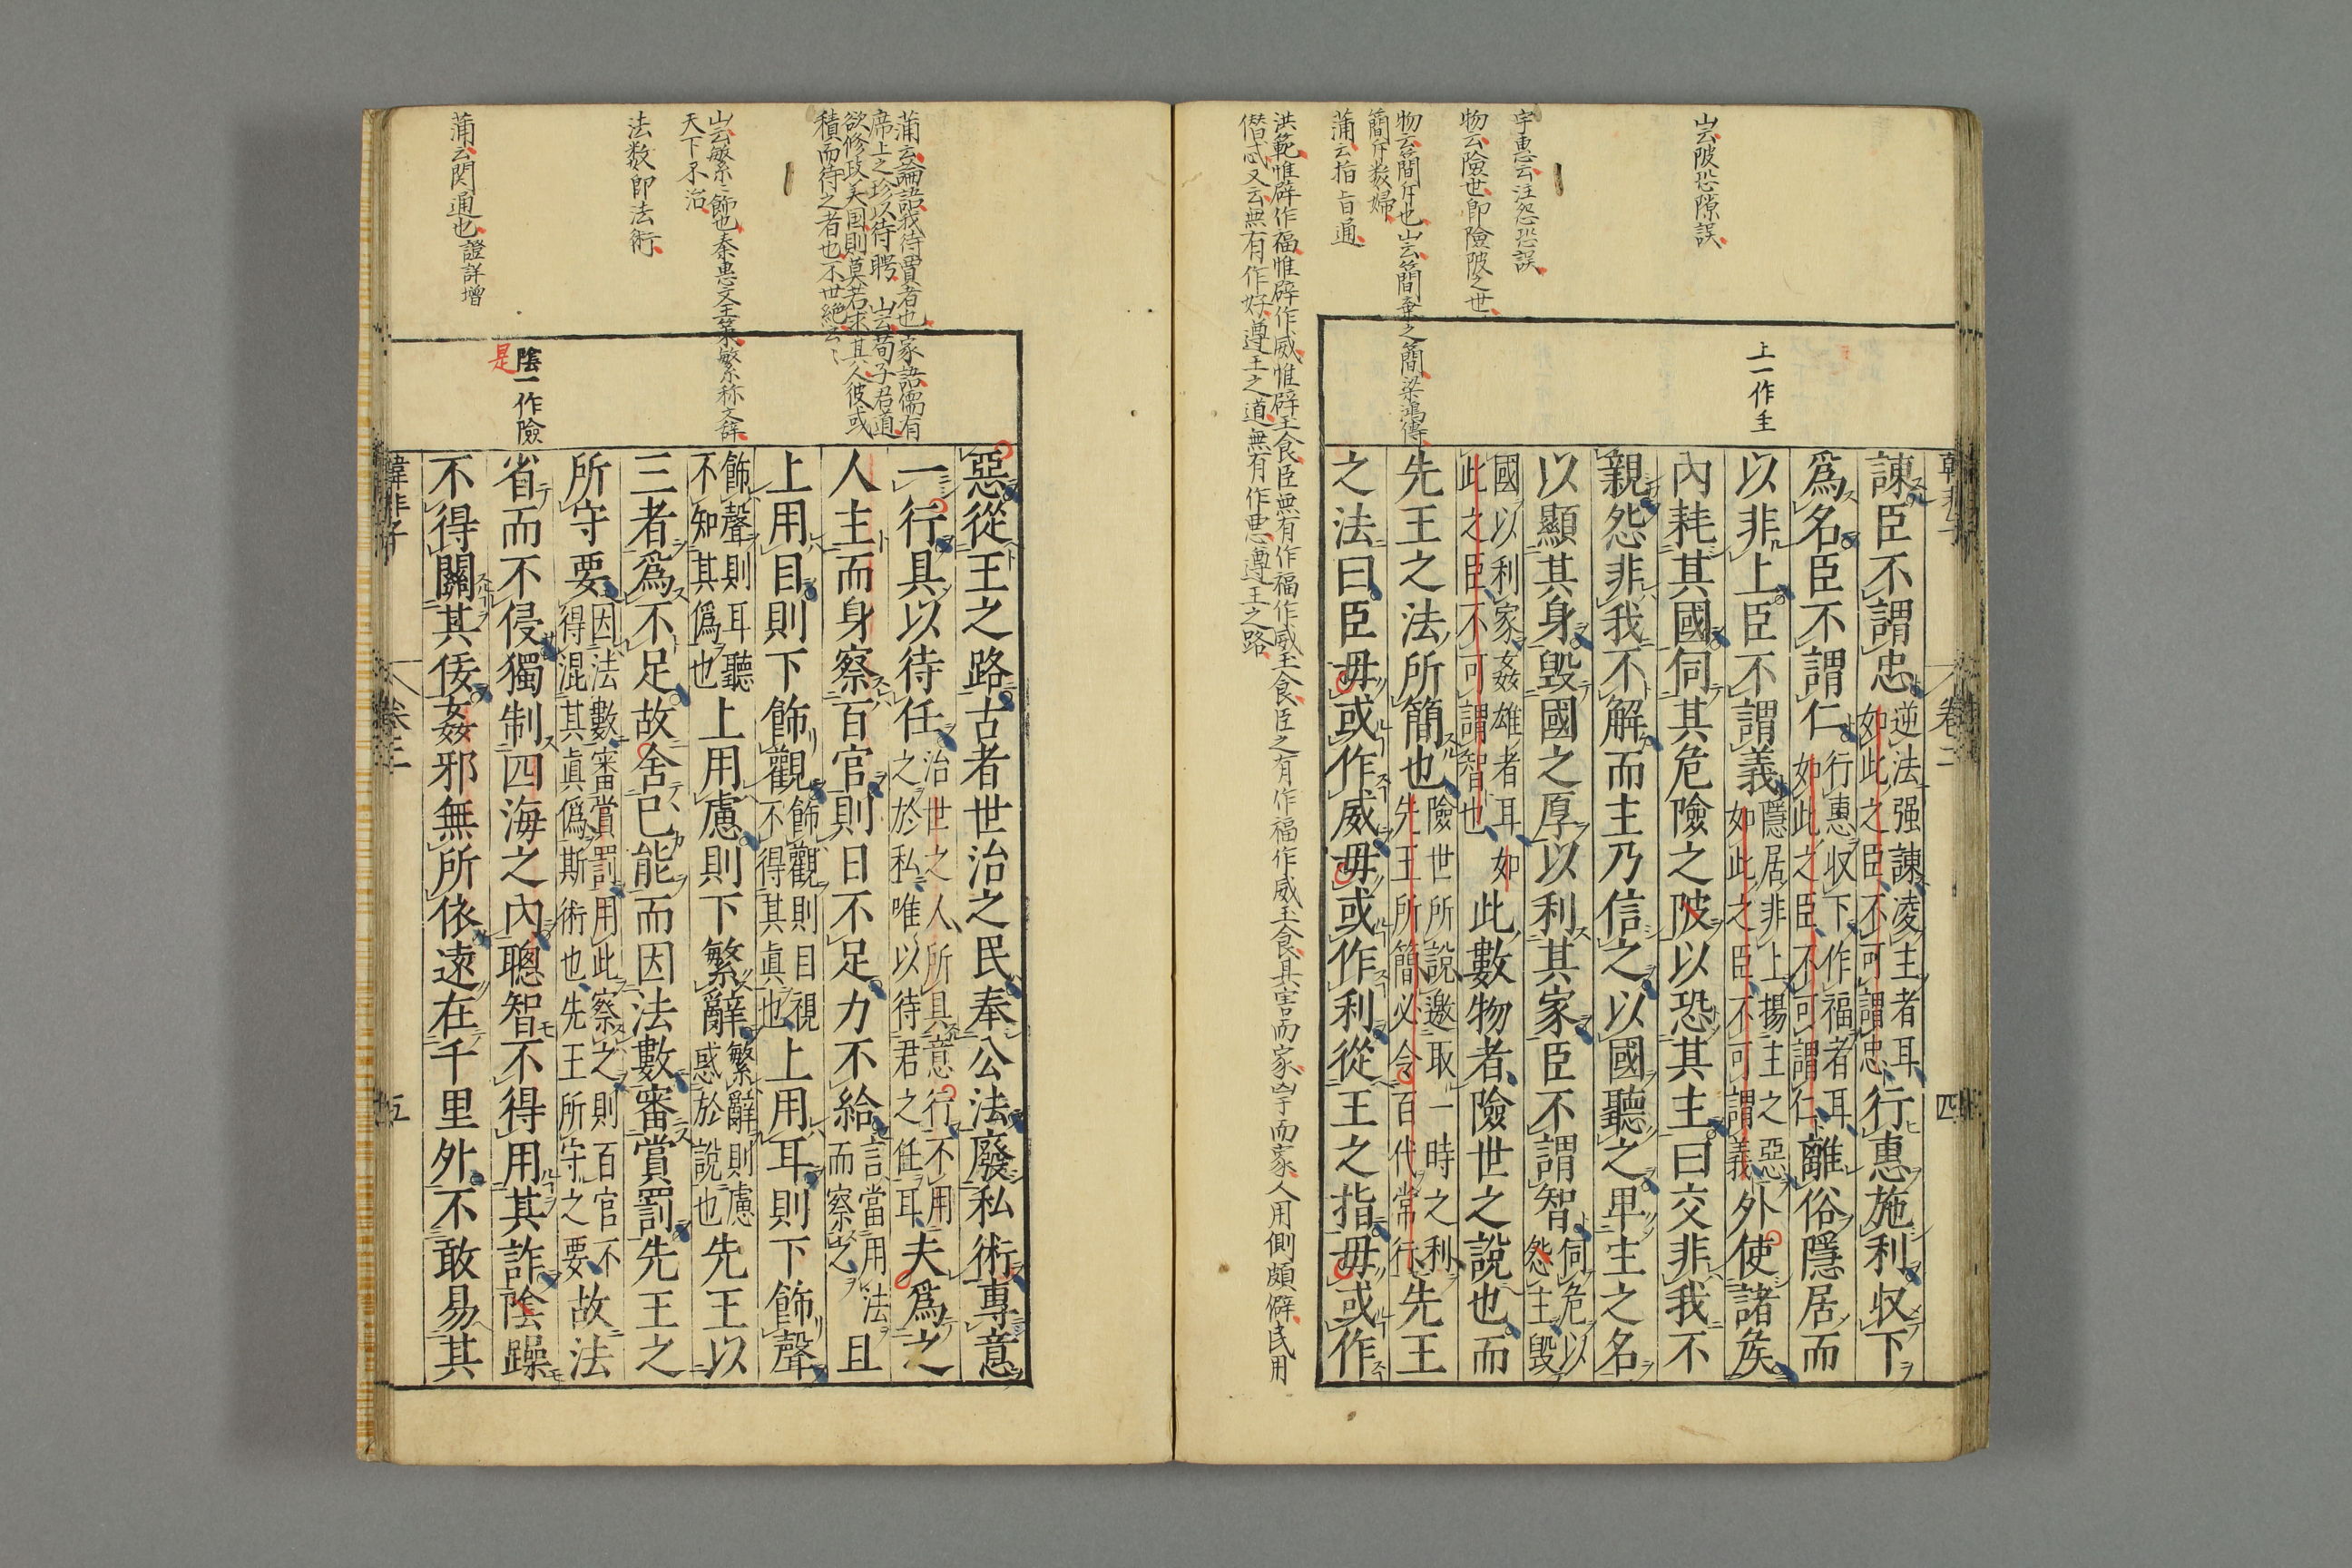 山云陂恐隙誤
宇惠云注怨恐誤
物云險世即險陂之世
物云簡斥也山云簡棄之簡梁鴻傳
簡斥數婦
蒲云指旨通
上一作主
諫臣不謂忠逆法强諫凌主者耳如此之臣不可謂忠行惠施利収下
爲名臣不謂仁行惠収下作福者耳如此之臣不可謂仁離俗隱居而
以非上臣不謂義隱居非上揚主之惡如此之臣不可謂義外使諸矦
內耗其國伺其危險之陂以恐其主曰交非我不
親怨非我不解而主乃信之以國聽之卑主之名
以顯其身毀國之厚以利其家臣不謂智伺危以怨主毀
國以利家姦雄者耳如此之臣不可謂智也此數物者險世之說也而
先王之法所簡也險世所說邀取一時之利先王所簡必令百代常行先王
之法曰臣毋或作威毋或作利從王之指毋或作
洪範惟辟作福惟辟作威惟辟玉食臣無有作福作威玉食臣之有作福作威玉食其害而家凶于而家人用側頗僻民用
僭忒又云無有作好遵王之道無有作惡遵王之路
韓非子 卷二 四
蒲云論語我待賈者也家語儒有
席上之珍以待聘山云荀子君道
欲修政美国則莫若求其人彼或
積而待之者也不世絶云〻
山云繁〻飾也秦惠文王策繁称文辞
天下不治
法数即法術
蒲云関通也證詳增
陰一作險
是
惡從王之路古者世治之民奉公法廢私術專意
一行具以待任治世之人所具意行不用之於私唯以待君之任耳夫爲之
人主而身察百官則日不足力不給言當用法而察之且
上用目則下飾觀飾觀則目視不得其眞也上用耳則下飾聲
飾聲則耳聽不知其僞也上用慮則下繁辭繁辭則慮惑於說也先王以
三者爲不足故舍己能而因法數審賞罰先王之
所守要因法數審賞罰用此察之則百官不得混其眞僞斯術也先王所守之要故法
省而不侵獨制四海之內聰智不得用其詐陰躁
不得關其佞姦邪無所依遠在千里外不敢易其
韓非子 卷二 五